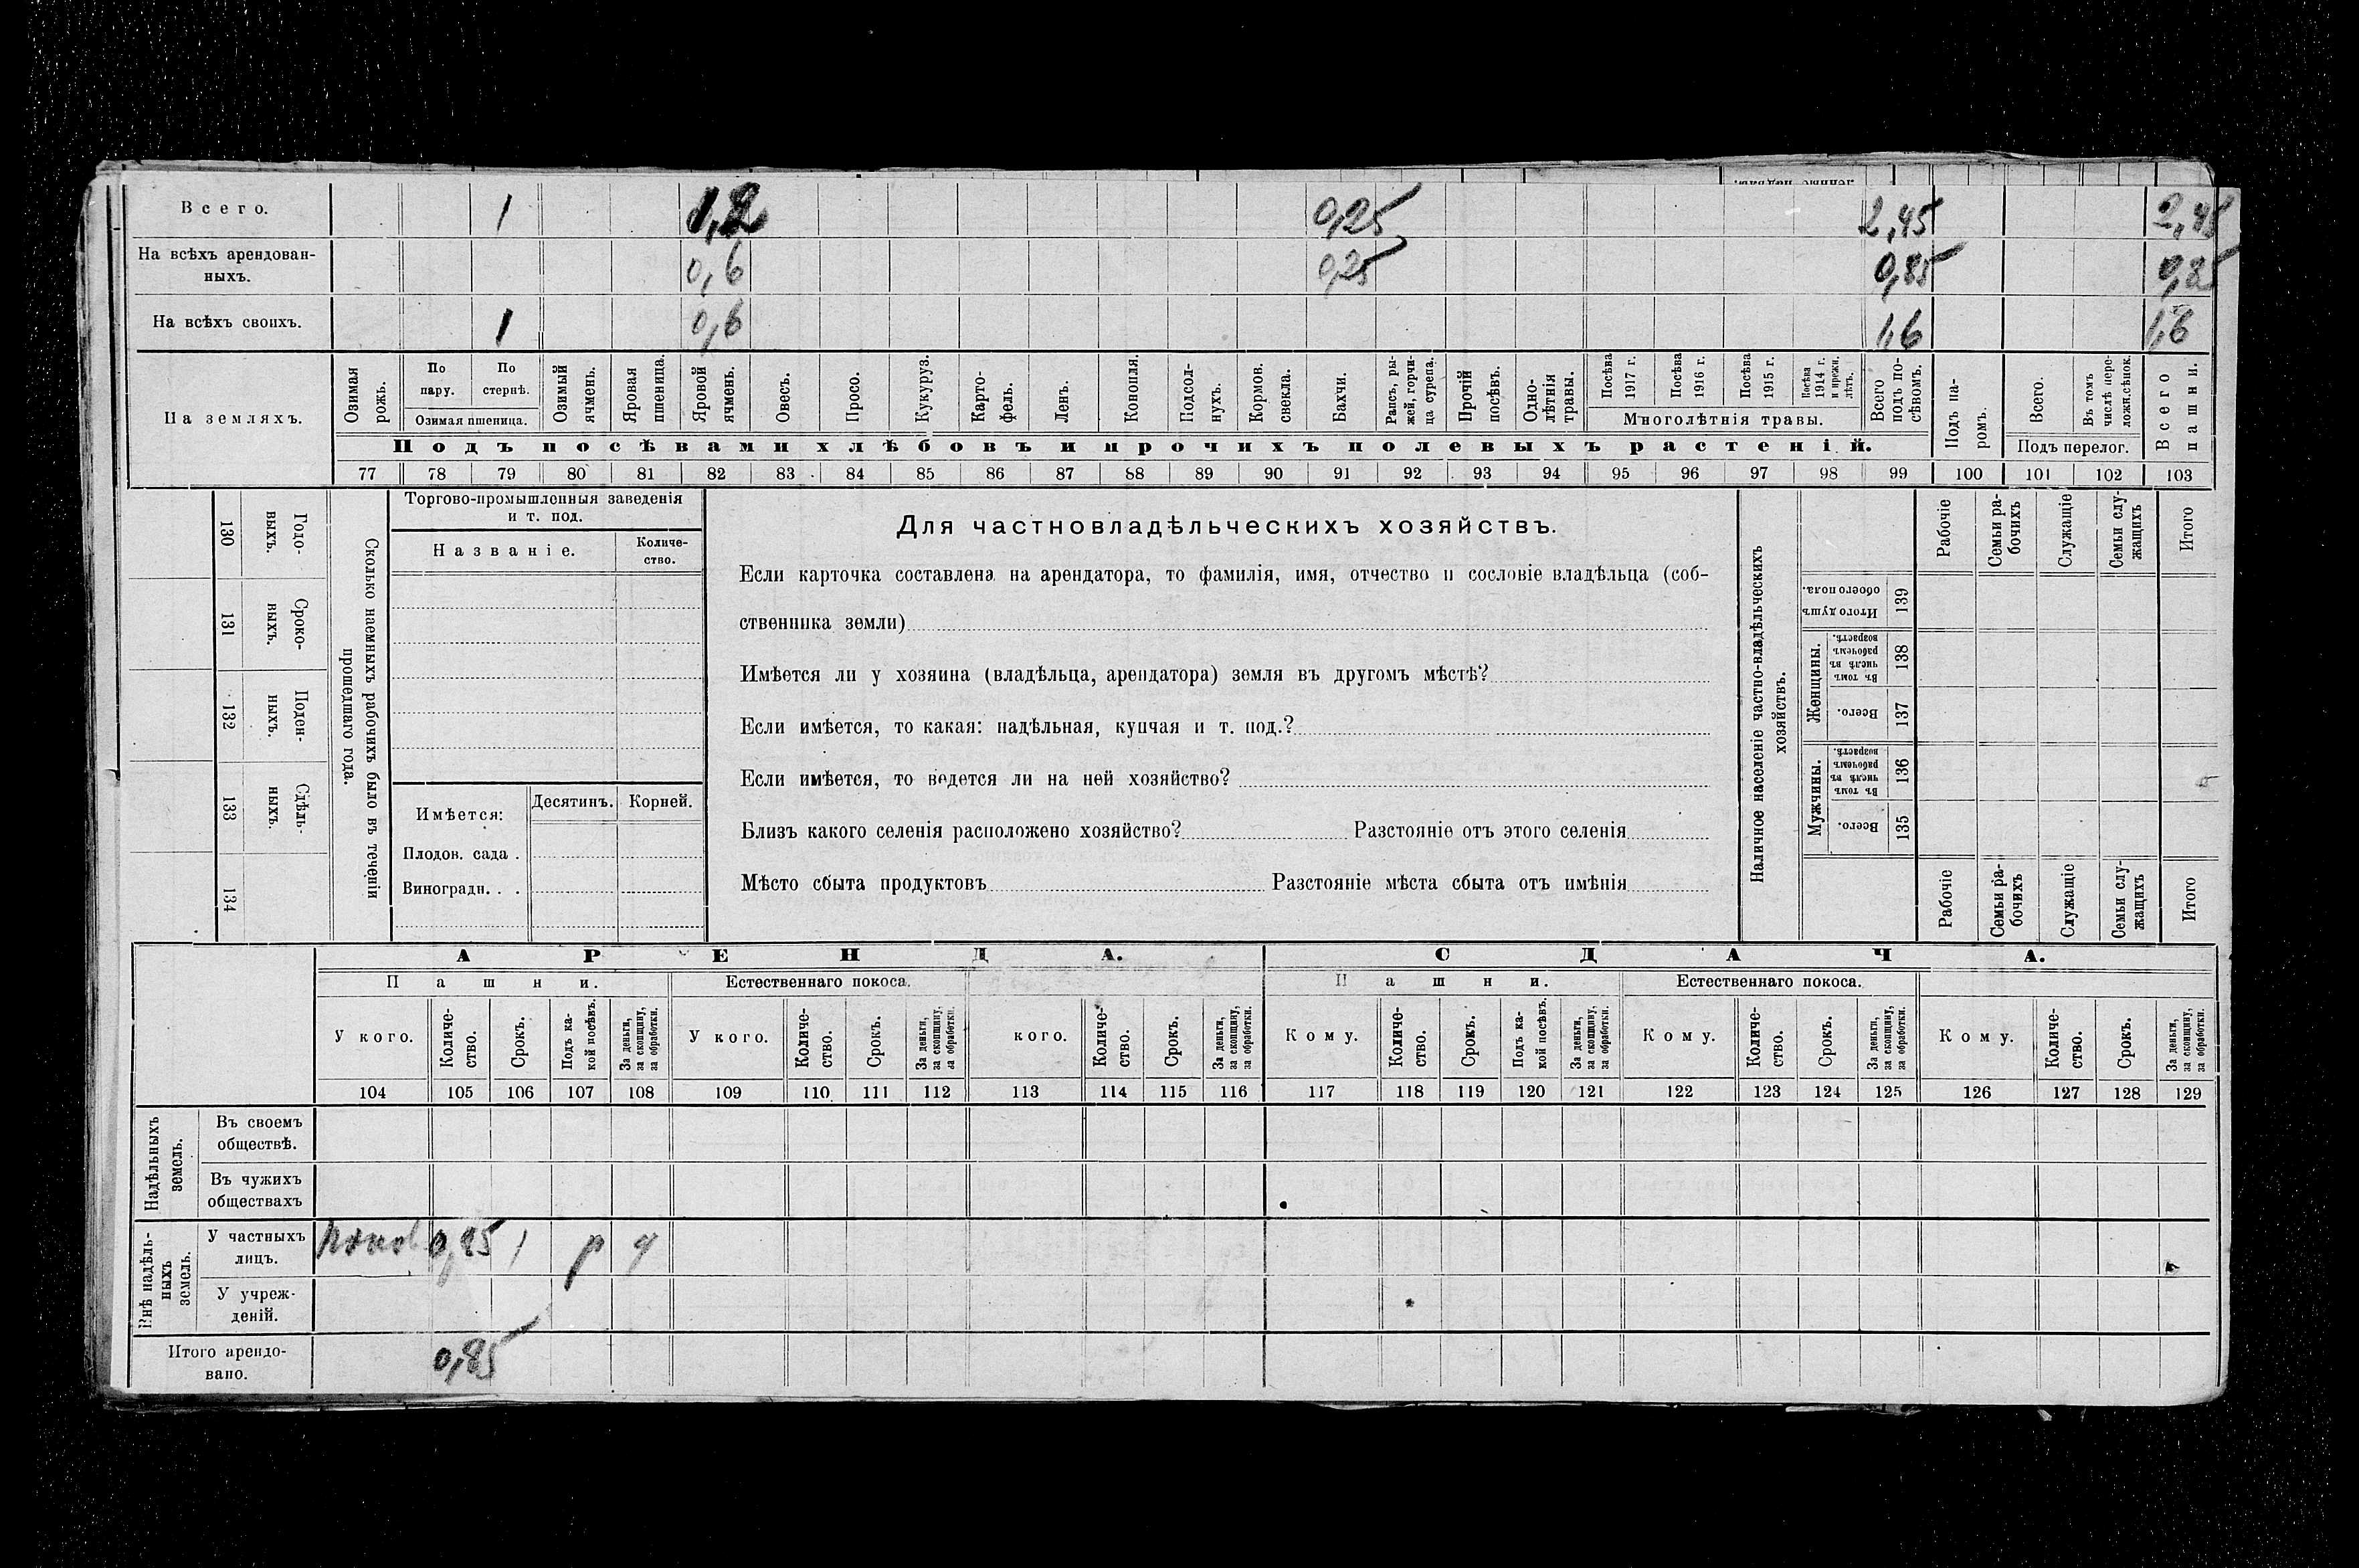 Всего. 1 1,2 0,25 2,45 2,45
На всѣхъ арендован-
ныхъ. 0,6 0,25 0,85 0,85
На всѣхъ своихъ. 1 0,6 1,6 1,6
На земляхъ.
Озимая рожь.
По пару.
По стернѣ.
Озимая пшеница.
Озимый ячмень.
Яровая пшеница.
Яровой ячмень.
Овесъ.
Просо.
Кукуруз.
Карто-
фель.
Ленъ.
Конопля.
Подсол-
нухъ.
Кормов. свекла.
Бахчи.
Рапсъ, ры-
жей, горчи-
ца сурепа.
Прочій посѣвъ.
Одно-
лѣтнія травы.
Посѣва 1917 г.
Посѣва 1916 г.
Посѣва 1915 г.
Посѣва 1914 г. и прежн. лѣтъ.
Многолѣтнія травы.
Всего подъ по-
сѣвомъ.
Подъ па-
ромъ.
Всего.
Въ томъ числѣ пере-
ложн. сѣнок.
Подъ перелог.
Всего пашни.
Подъ посѣвами хлѣбовъ и прочихъ полевыхъ растеній.
77 78 79 80 81 82 83 84 85 86 87 88 89 90 91 92 93 94 95 96 97 98 99 100 101 102 103
Сколько наемныхъ рабочихъ было въ теченіи
прошедшаго года.
Годо-
выхъ.
130
Сроко-
ныхъ.
131
Поден-
ныхъ.
132
Сдѣль-
ныхъ.
133
134
Торгово-промышленныя заведенія
и т. под.
Названіе.
Количе-
ство.
Имѣется:
Десятинъ.
Корней.
Плодов. сада .
Виноградн. . .
Для частновладѣльческихъ хозяйствъ.
Если карточка составлена на арендатора, то фамилія, имя, отчество и сословіе владѣльца (соб-
ственника земли)
Имѣется ли у хозяина (владѣльца, арендатора) земля въ другомъ мѣстѣ?
Если имѣется, то какая: надѣльная, купчая и т. под.?
Если имѣется, то ведется ли на ней хозяйство?
Близъ какого селенія расположено хозяйство? Разстояніе отъ этого селенія
Мѣсто сбыта продуктовъ Разстояніе мѣста сбыта отъ имѣнія
Наличное населеніе частно-владѣльческихъ
хозяйствъ.
Рабочіе
Семьи ра-
бочихъ
Служащіе
Семьи слу-
жащихъ
Итого
Итого душъ
обоего пола.
139
Женщины.
Въ томъ числѣ въ рабочемъ возрастѣ.
138
Всего.
137
Мужчины.
Въ томъ числѣ въ рабочемъ возрастѣ.
136
Всего.
135
Рабочіе
Семьи ра-
бочихъ
Служащіе
Семьи слу-
жащихъ
Итого
АРЕНДА. СДАЧА.
Пашни. Естественнаго покоса. Пашни. Естественнаго покоса.
У кого.
Количе-
ство.
Срокъ.
Подъ ка-
кой посѣвъ.
За деньги,
за скопщину,
за обработки.
У кого.
Количе-
ство.
Срокъ.
За деньги,
за скопщину,
за обработки.
кого.
Количе-
ство.
Срокъ.
За деньги,
за скопщину,
за обработки.
Кому.
Количе-
ство.
Срокъ.
Подъ ка-
кой посѣвъ.
За деньги,
за скопщину,
за обработки.
Кому.
Количе-
ство.
Срокъ.
За деньги,
за скопщину,
за обработки.
Кому.
Количе-
ство.
Срокъ.
За деньги,
за скопщину,
за обработки.
104 105 106 107 108 109 110 111 112 113 114 115 116 117 118 119 120 121 122 123 124 125 126 127 128 129
Надѣльныхъ
земель.
Въ своемъ
обществѣ.
Въ чужихъ
обществахъ
Внѣ надѣль-
ныхъ
земель.
У частныхъ
лицъ. 0,85 1 р
У учреж-
деній.
Итого арендо-
вано. 0,85